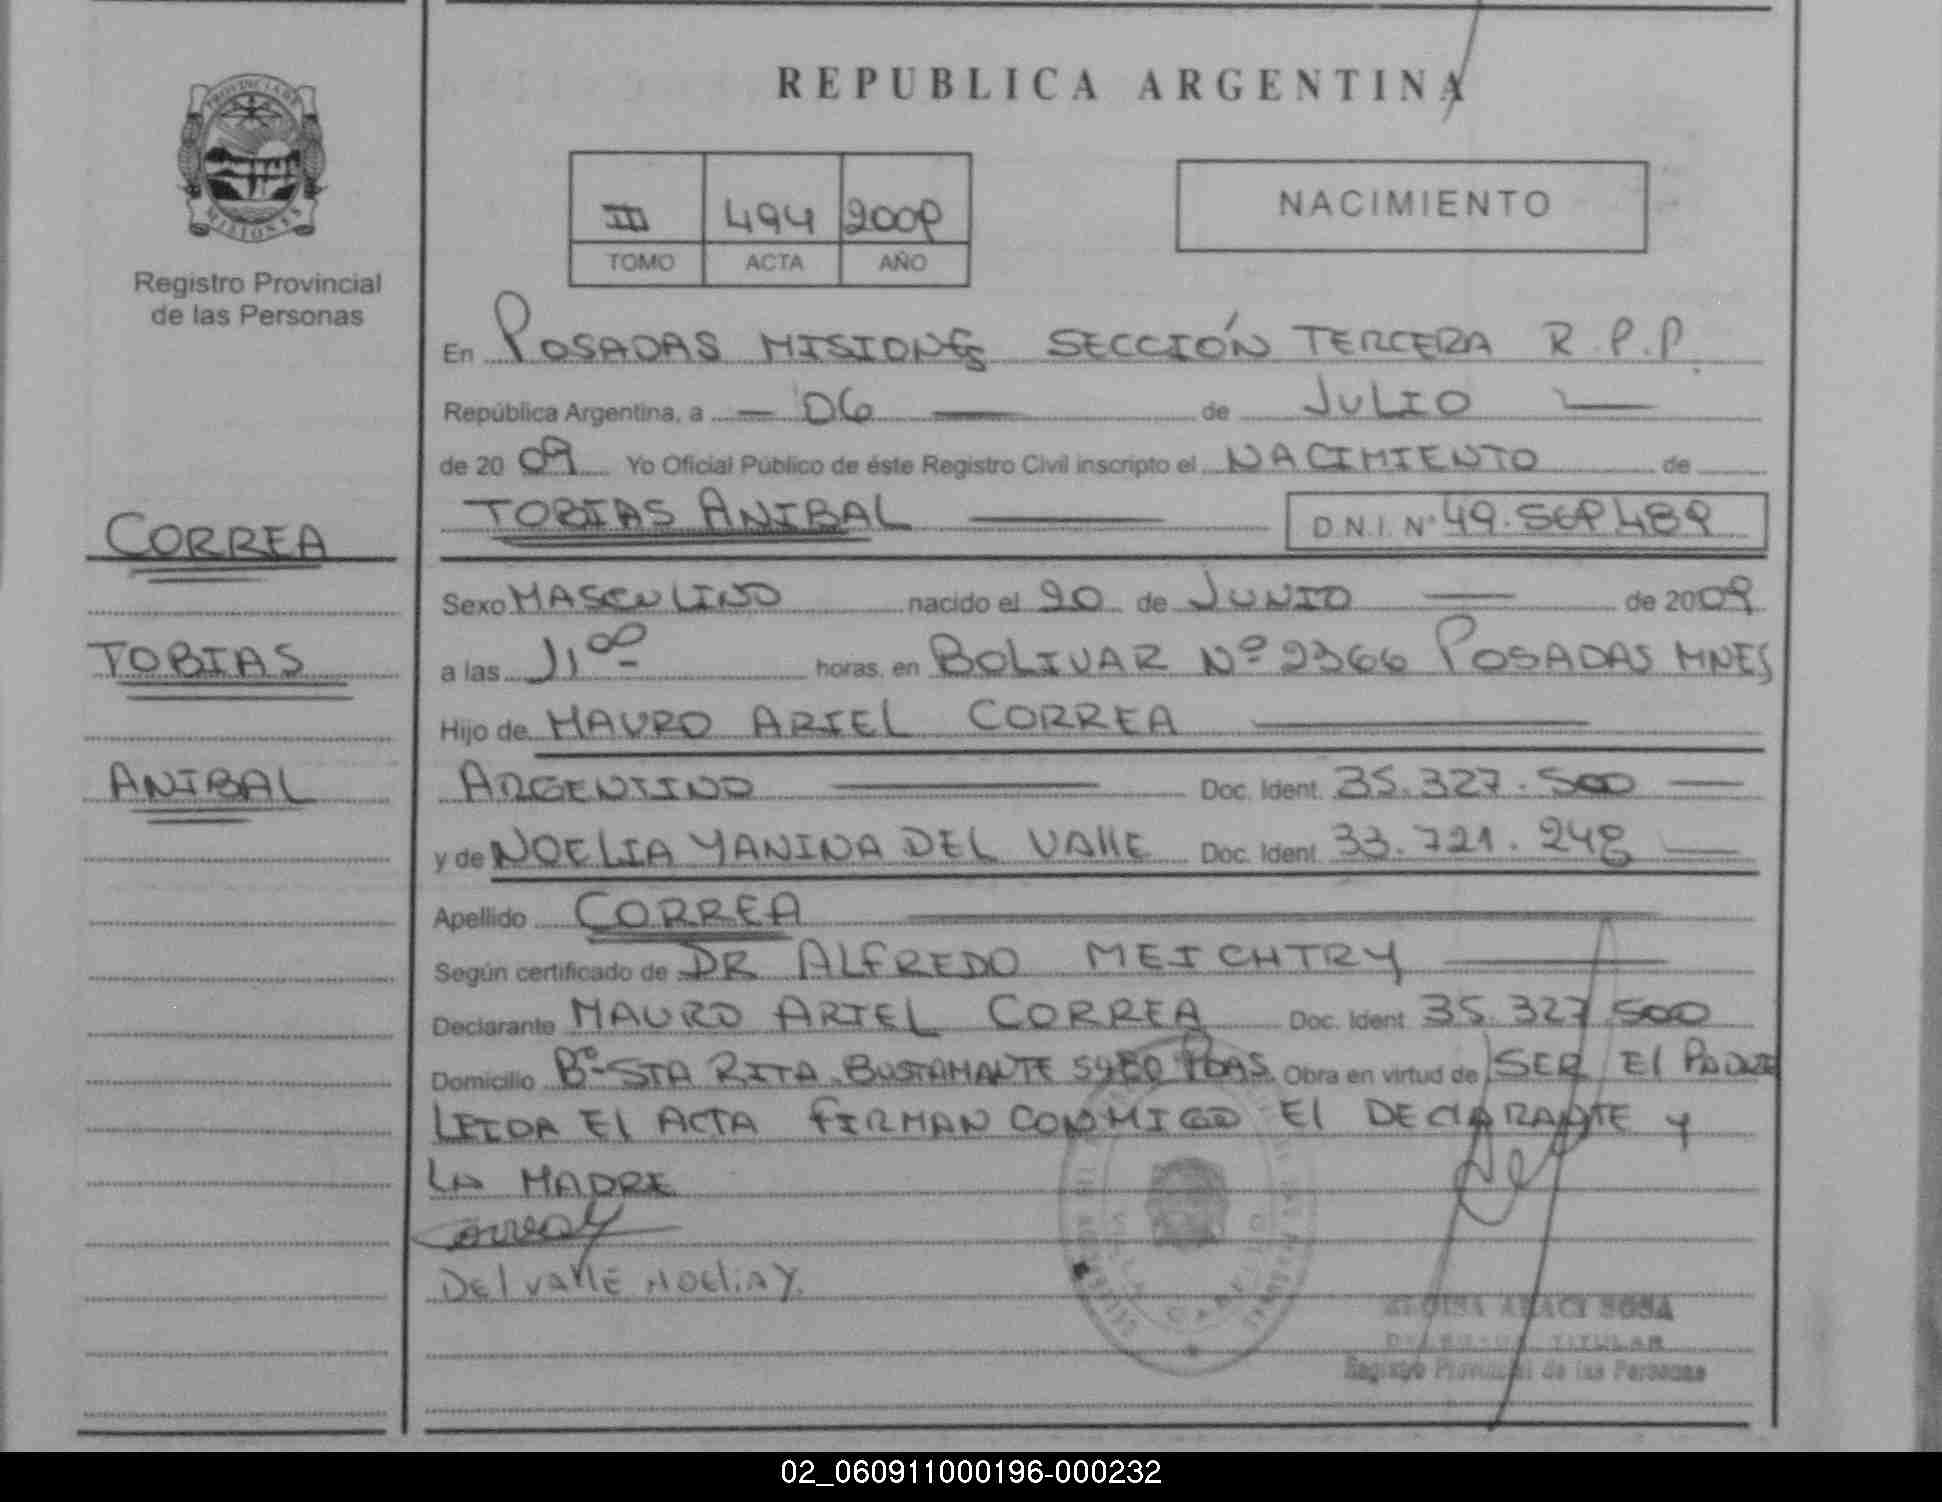 REPUBLICA ARGENTINA
PROVINCIA DE
MISIONES
Registro Provincial
de las Personas
III 494 2009
TOMO ACTA AÑO
NACIMIENTO
En POSADAS MISIONES SECCIÓN TERCERA R.P.P.
República Argentina, a — 06 — de JULIO —
de 20 09 Yo Oficial Público de éste Registro Civil inscripto el NACIMIENTO de
CORREA
TOBIAS ANIBAL — D.N.I. Nº 49.569.489
Sexo MASCULINO nacido el 20 de JUNIO — de 2009
TOBIAS
a las 11 00 horas, en BOLIVAR Nº 2366 POSADAS MNES
Hijo de MAURO ARIEL CORREA —
ANIBAL
ARGENTINO — Doc. Ident. 35.327.500 —
y de NOELIA YANINA DEL VALLE Doc. Ident. 33.721.248 —
Apellido CORREA —
Según certificado de DR ALFREDO MEICHTRY —
Declarante MAURO ARIEL CORREA Doc. Ident 35.327.500
Domicilio Bº STA RITA BUSTAMANTE PDAS. Obra en virtud de SER El PADRE
LEIDA El ACTA FIRMAN CONMIGO El DEClARANTE y
LA MADRE
Del valle Noelia Y.
ARACI SOSA
TITULAR
Registro Provincial de las Personas
02_060911000196-000232